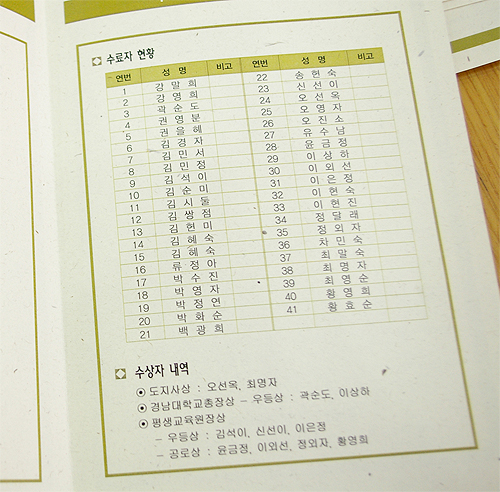 수료자 현황
연번 성 명 비고 연번 성 명 비고
1 강 말 희 22 송 헌 숙
2 강 영 희 23 신 선 이
3 곽 순 도 24 오 선 옥
4 권 영 분 25 오 영 자
5 권 을 혜 26 오 진 소
6 김 경 자 27 유 수 남
7 김 민 서 28 윤 금 정
8 김 민 정 29 이 상 하
9 김 석 이 30 이 외 선
10 김 순 미 31 이 은 정
11 김 시 둘 32 이 현 숙
12 김 쌍 점 33 이 현 진
13 김 헌 미 34 정 달 래
14 김 혜 숙 35 정 외 자
15 김 혜 숙 36 차 민 숙
16 류 정 아 37 최 말 숙
17 박 수 진 38 최 명 자
18 박 영 자 39 최 영 순
19 박 정 연 40 황 영 희
20 박 화 순 41 황 효 순
21 백 광 희
수상자 내역
도지사상 : 오선옥, 최명자
경남대학교총장상 - 우등상 : 곽순도, 이상하
평생교육원장상
- 우등상 : 김석이, 신선이, 이은정
- 공로상 : 윤금정, 이외선, 정외자, 황영희